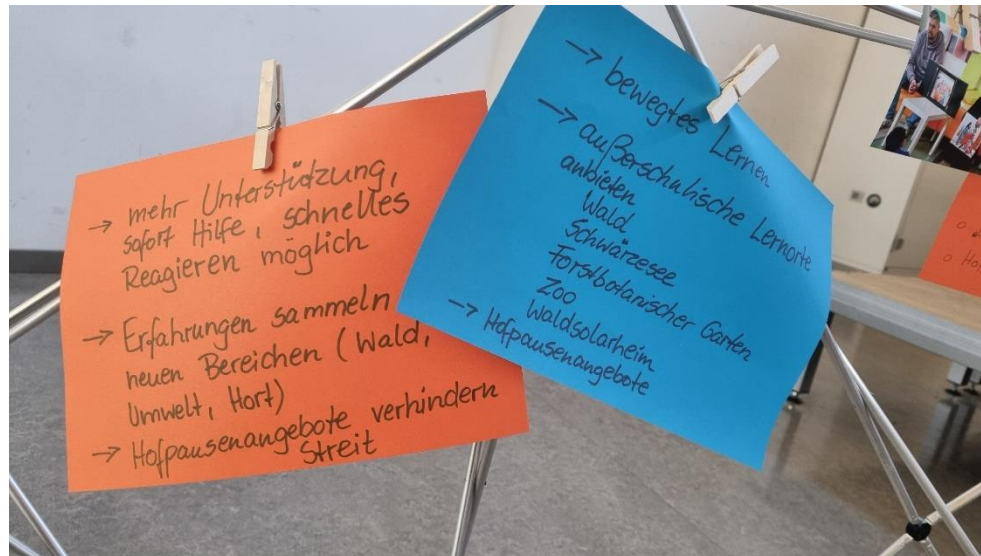 → mehr Unterstützung,
sofort Hilfe, schnelles
Reagieren möglich
→ Erfahrungen sammeln
neuen Bereichen (Wald,
Umwelt, Hort)
→ Hofpausenangebote verhindern
Streit
→ bewegtes Lernen
→ außerschulische Lernorte
anbieten
Wald
Schwärzesee
Forstbotanischer Garten
Zoo
Waldsolarheim
→ Hofpausenangebote